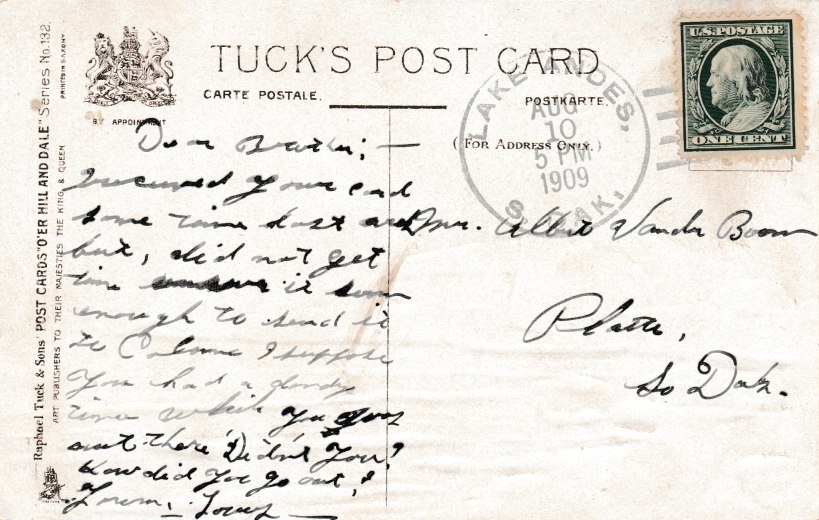 TUCK'S POST CARD
CARTE POSTALE.
POSTKARTE.
(FOR ADDRESS ONLY.)
BY APPOINTMENT
Raphael Tuck & Sons' POST CARDS "O'ER HILL AND DALE" Series No. 132.
ART PUBLISHERS TO THEIR MAJESTIES THE KING & QUEEN
PRINTED IN SAXONY
U.S. POSTAGE
ONE CENT
LAKE ANDES,
AUG
10
5 PM
1909
S. DAK.
Dear Brother; —
Received your card
some time last
but, did not get
time it soon
enough to send it
to I suppose
You had a dandy
time while you
out there Didn't You?
How did you go out?
Yours,
Mr. Albert Vander Boom
Platte,
So Dak.